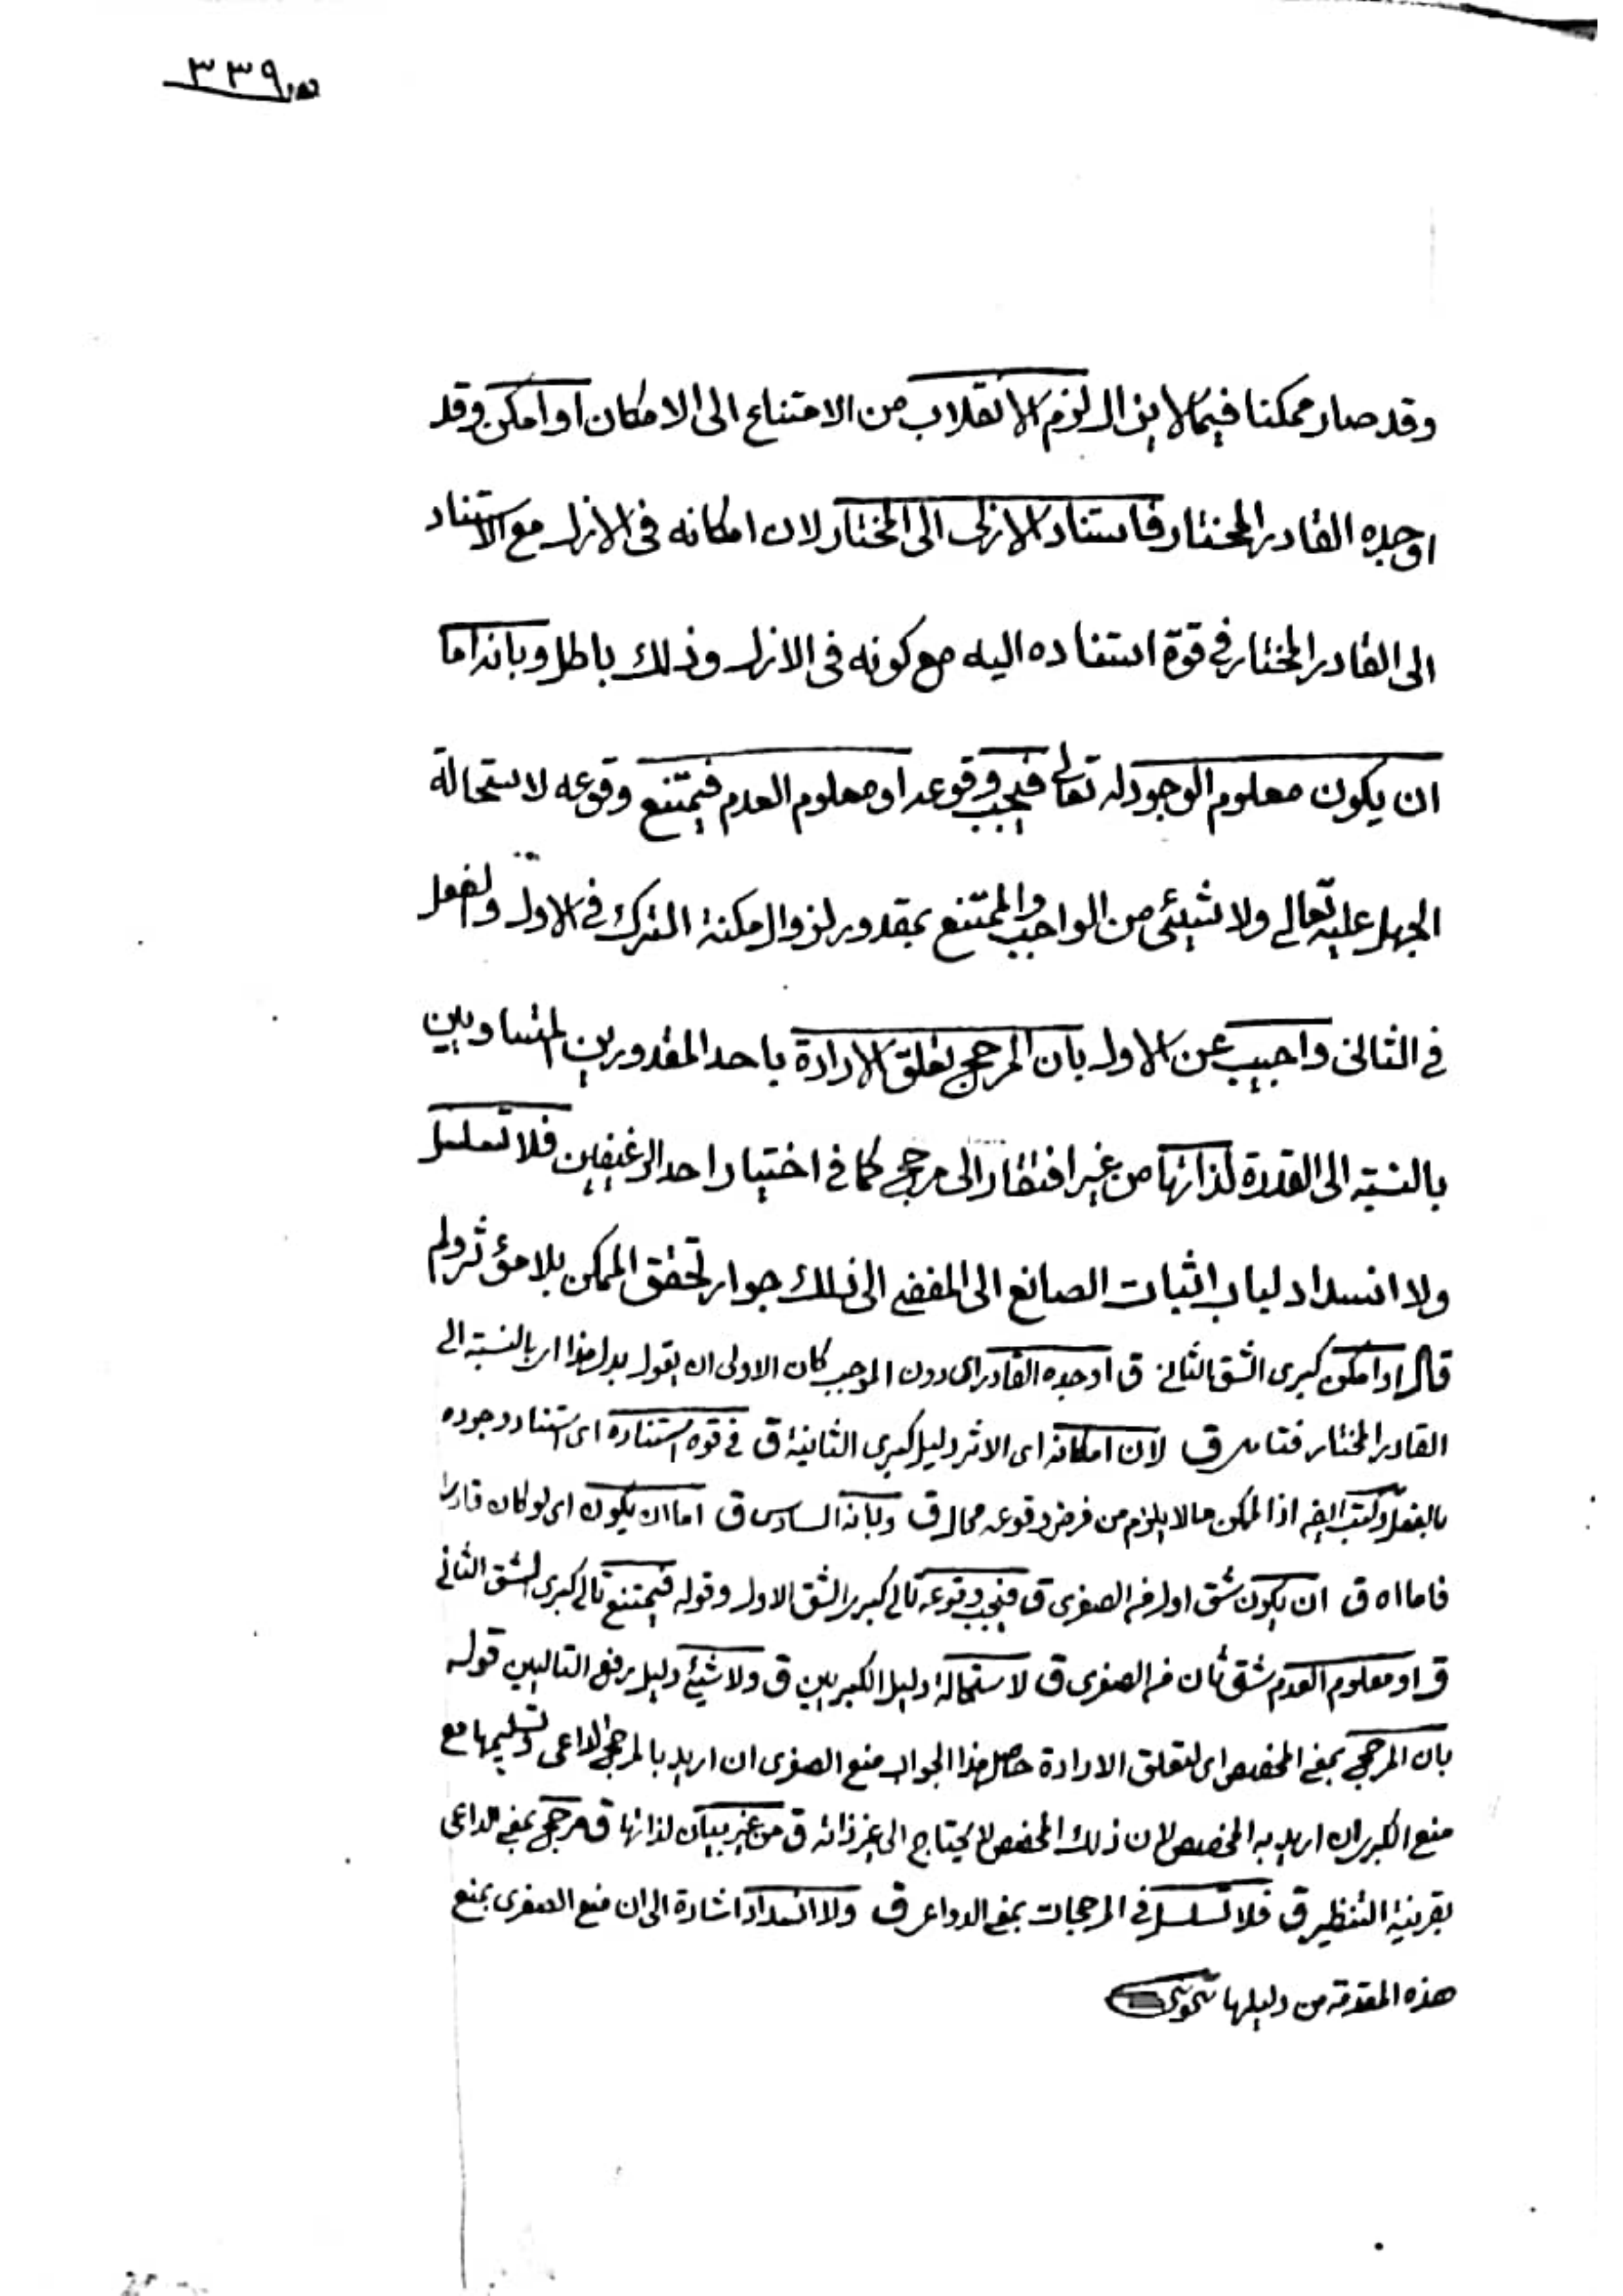 صـ ٣٣٩
وقد صار ممكنا فيما لا يزال لزم الانقلاب من الامتناع الى الامكان او امكن وقد
اوجده القادر المختار فاستناد الازلى الى المختار لان امكانه فى الازل مع الاستناد
الى القادر المختار في قوة استناده اليه مع كونه فى الازل وذلك باطل وبانه اما
ان يكون معلوم الوجود له تعالى فيجب وقوعه او معلوم العدم فيمتنع وقوعه لاستحالة
الجهل عليه تعالى ولا شيئى من الواجب والممتنع بمقدور لزوال مكنة الترك فى الاول والفعل
فى الثانى واجيب عن الاول بان المرجح تعلق الارادة باحد المقدورين المتساويين
بالنسبة الى القدرة لذاتها من غير افتقار الى مرجح كما فى اختيار احد الرغيفين فلا تسلسل
ولا انسداد لباب اثبات الصانع الى المفضى الى ذلك جواز تحقق الممكن بلا مؤثر ولم
قال او امكن كبرى الشق الثانى ق اوجده القادر اى دون الموجب كان الاولى ان يقول بدل هذا اى بالنسبة الى
القادر المختار فتامل ق لان امكانه اى الاثر دليل كبرى الثانية ق فى قوة استناده اى استناد وجوده
بالفعل وكتب ايضا اذ الممكن ما لا يلزم من فرض وقوعه محال ق وبانه السادس ق اما ان يكون اى لو كان قادرا
فاما اه ق ان يكون شق اول من الصغرى ق فيجب وقوعه تالى كبرى الشق الاول وقوله فيمتنع تالى كبرى الشق الثانى
ق او معلوم العدم شق ثان من الصغرى ق لاستحالة دليل الكبريين ق ولا شيئ دليل رفع التاليين قوله
بان المرجح بمعنى المخصص اى لتعلق الارادة حاصل هذا الجواب منع الصغرى ان اريد بالمرجح الداعى وتسليمها مع
منع الكبرى ان اريد به المخصص لان ذلك المخصص لا يحتاج الى غير ذاته ق من غير بيان لذاتها ق مرجح بمعنى الداعى
بقرينة التنظير ق فلا تسلسل فى المرجحات بمعنى الدواعى ق ولا انسداد اشارة الى ان منع الصغرى بمنع
هذه المقدمة من دليلها